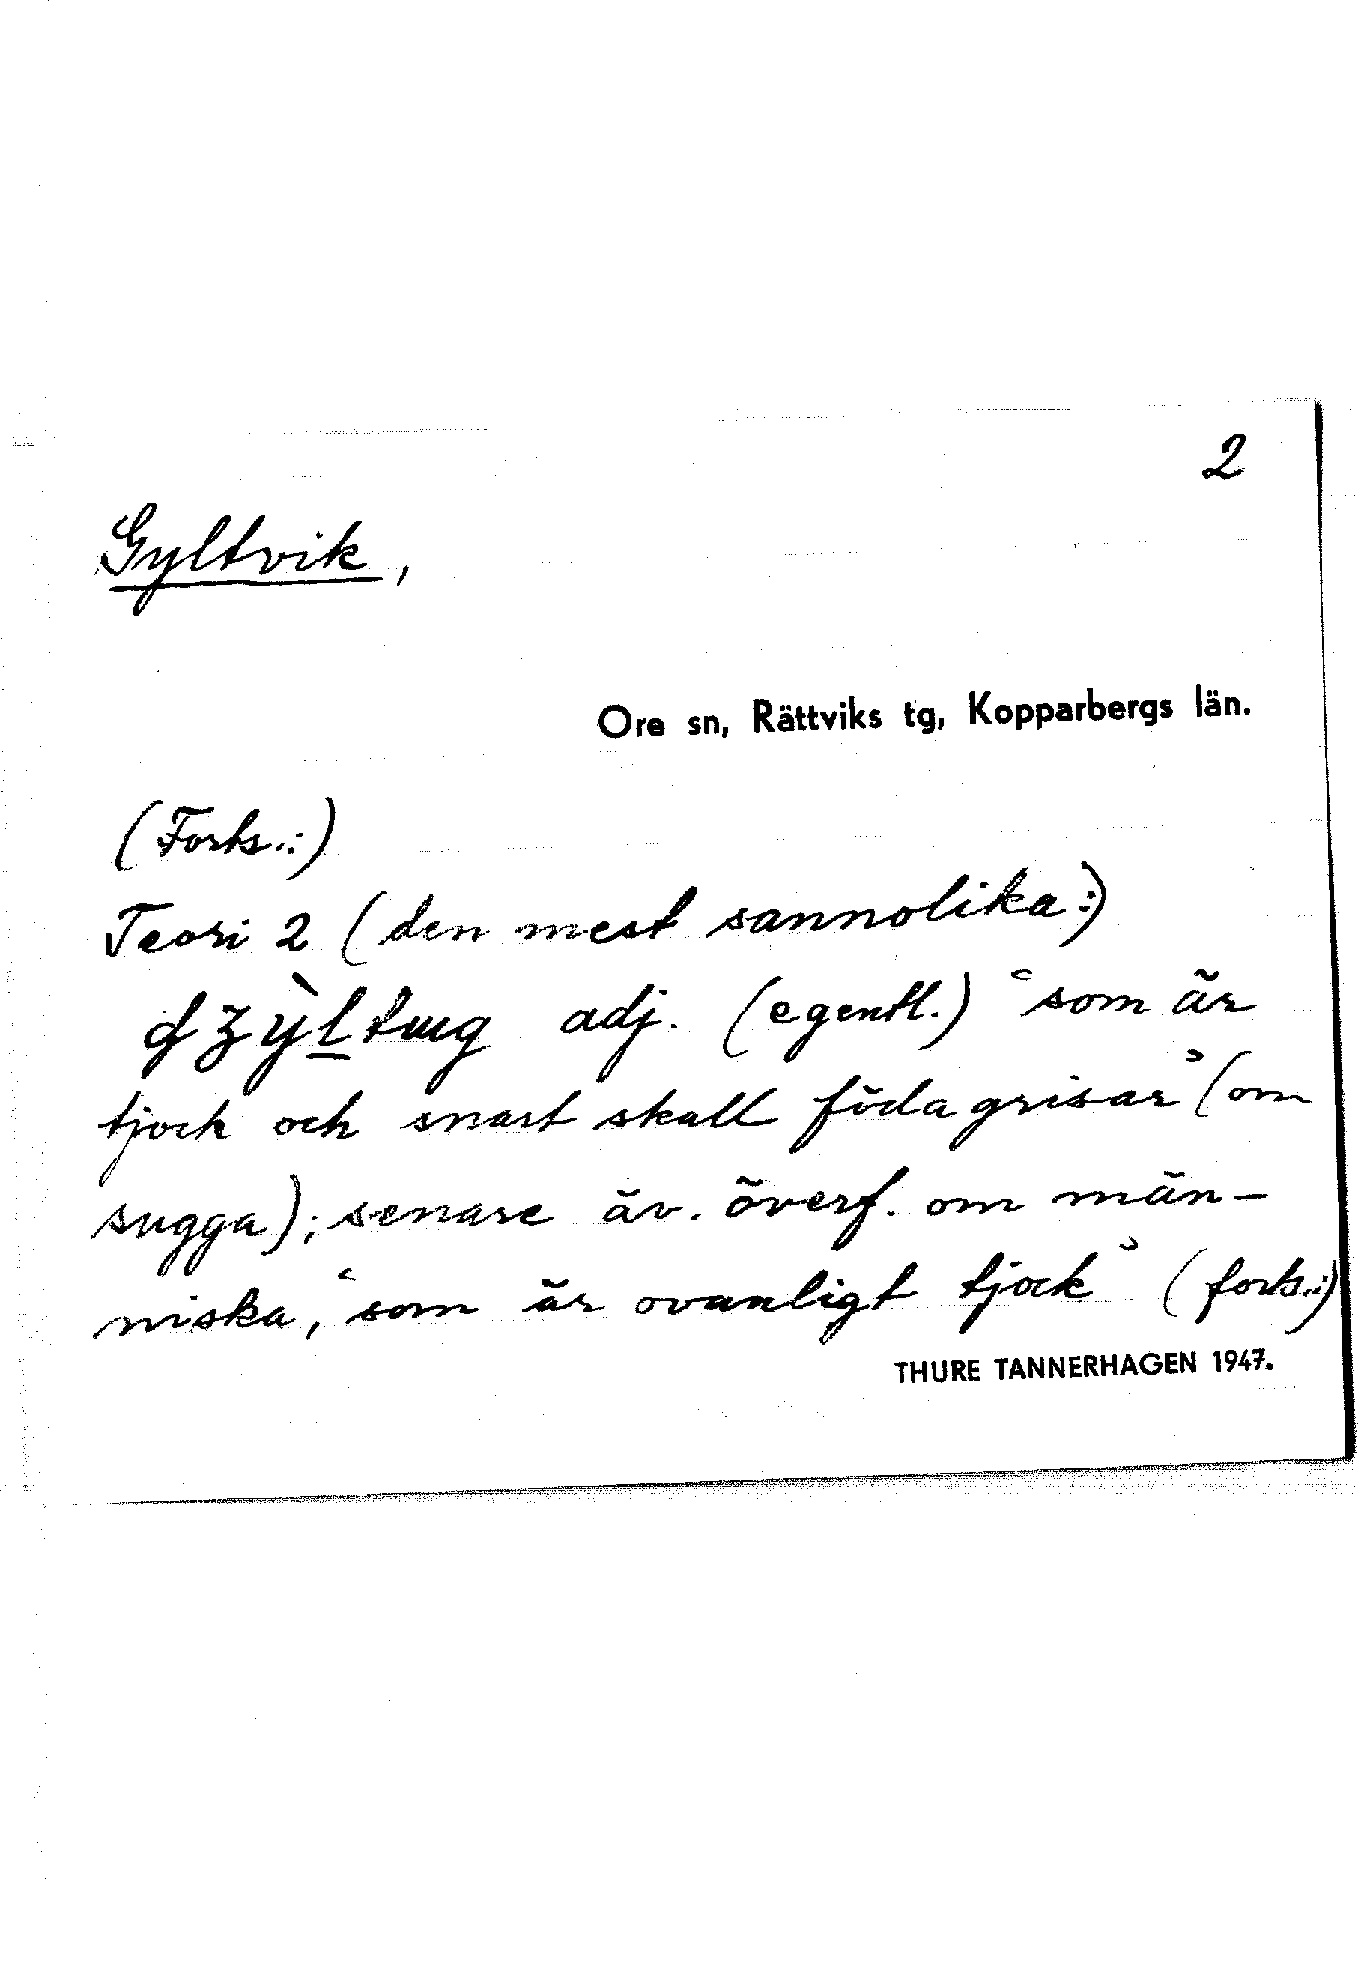 2
Gyltvik,
Ore sn, Rättviks tg, Kopparbergs län.
(Forts.:)
Teori 2 (den mest sannolika:)
adj. (egentl.) "som är
tjock och snart skall föda grisar" (om
sugga); senare äv. överf. om män-
niska, "som är ovanligt tjock" (forts.:)
THURE TANNERHAGEN 1947.